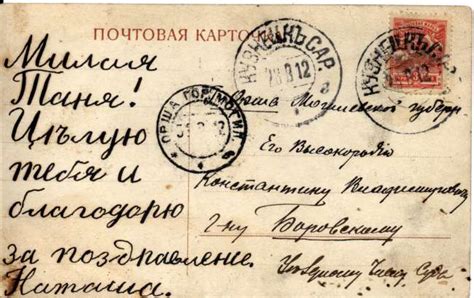 ПОЧТОВАЯ КАРТОЧКА
Милая
Таня!
Цѣлую
тебя и
благодорю
за поздравленіе.
Наташа.
КУЗНЕЦКЪ САР.
28 8 12
а
КУЗНЕЦКЪ САР.
8 12
ОРША ГОР. МОГИЛ.
Орша Могилевской губерн.
Его Высокородію
Константину Владиміровичу
г-ну Боровскому
Суда